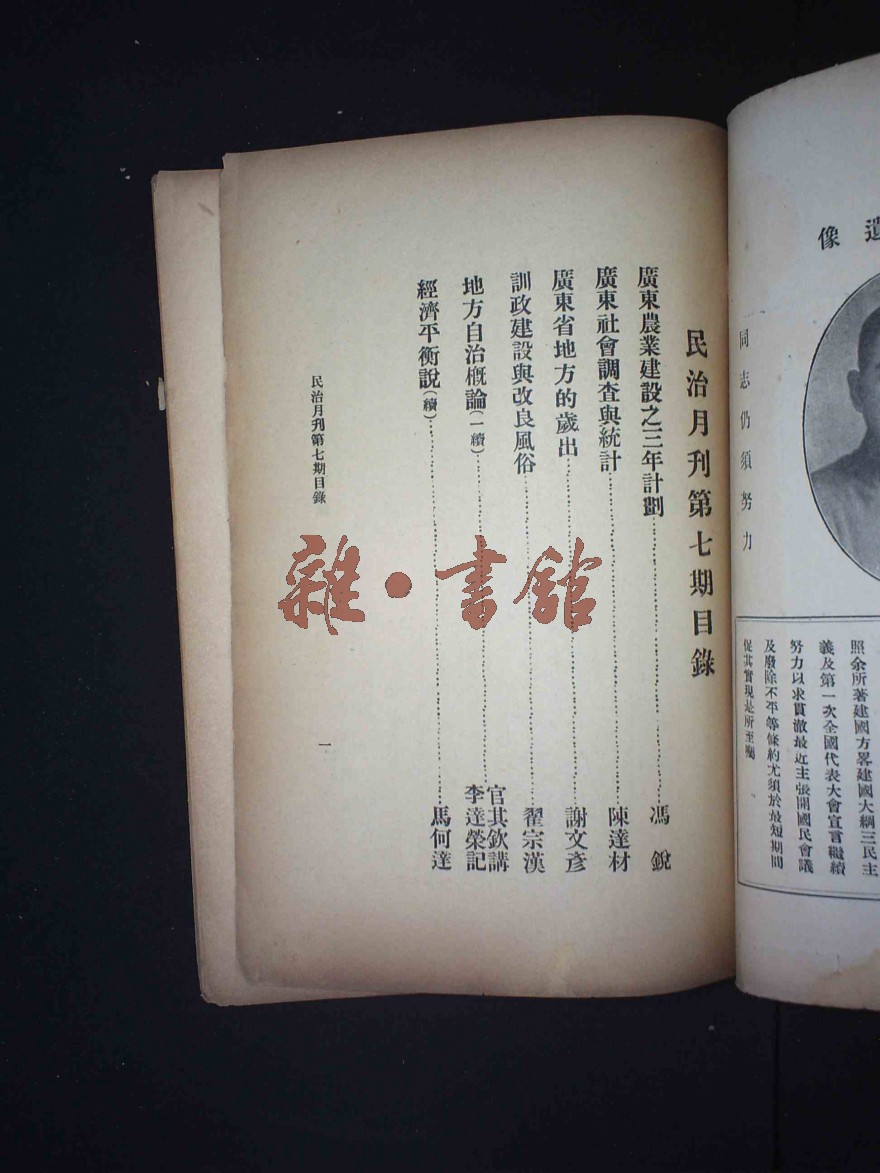 遺像
同志仍須努力
照余所著建國方畧建國大綱三民主
義及第一次全國代表大會宣言繼續
努力以求貫澈最近主張開國民會議
及廢除不平等條約尤須於最短期間
促其實現是所至囑
民治月刊第七期目錄
廣東農業建設之三年計劃……馮銳
廣東社會調查與統計……陳達材
廣東省地方的歲出……謝文彥
訓政建設與改良風俗……翟宗漢
地方自治概論(一續)……官其欽講 李達榮記
經濟平衡說(續)……馬何達
民治月刊第七期目錄
一
雜·書館